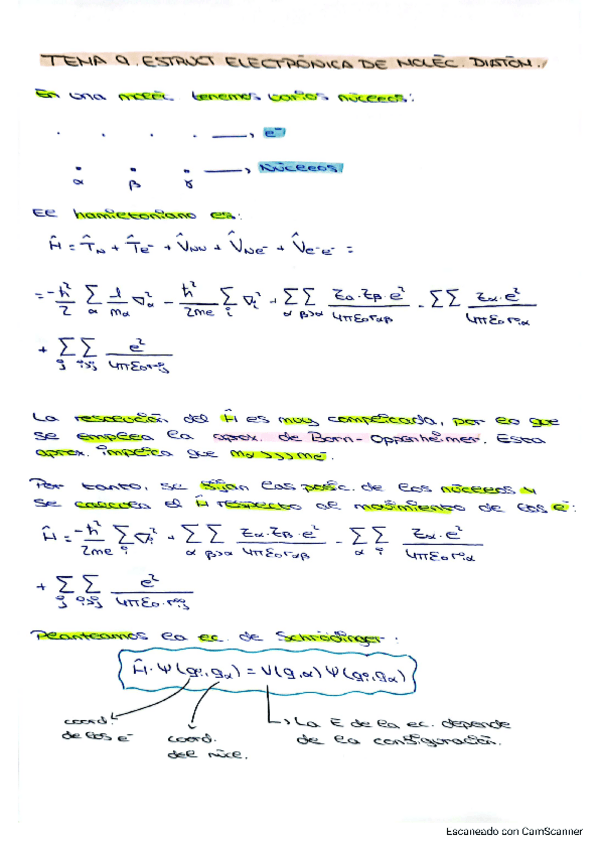 TEMA 9. ESTRUCT ELECTRÓNICA DE MOLÉC. DIATÓM.
En una moléc. tenemos varios núcleos:
· · · · → e⁻
• • • → Núcleos
α β γ
El hamiltoniano es:
Ĥ = T̂_N + T̂_e⁻ + V̂_NN + V̂_Ne⁻ + V̂_e⁻e⁻ =
= -ħ²/2 Σ_α 1/m_α ∇²_α - ħ²/2me Σ_i ∇²_i + Σ_α Σ_β>α Z_α·Z_β·e²/4πε₀r_αβ - ΣΣ Z_α·e²/4πε₀r_iα
+ Σ_j Σ_i>j e²/4πε₀r_ij
La resolución del Ĥ es muy complicada, por lo que
se emplea la aprox. de Born-Oppenheimer. Esta
aprox. implica que m_α >>> me⁻.
Por tanto, se fijan las posic. de los núcleos y
se calcula el Ĥ respecto al movimiento de los e⁻:
Ĥ = -ħ²/2me Σ_i ∇²_i + Σ_α Σ_β>α Z_α·Z_β·e²/4πε₀r_αβ - Σ_α Σ_i Z_α·e²/4πε₀r_iα
+ Σ_j Σ_i>j e²/4πε₀·r_ij
Planteamos la ec. de Schrödinger:
Ĥ·Ψ(q_i, q_α) = V(q,α) Ψ(q_i, q_α)
coord. de los e⁻
coord. del núc.
La E de la ec. depende
de la configuración.
Escaneado con CamScanner